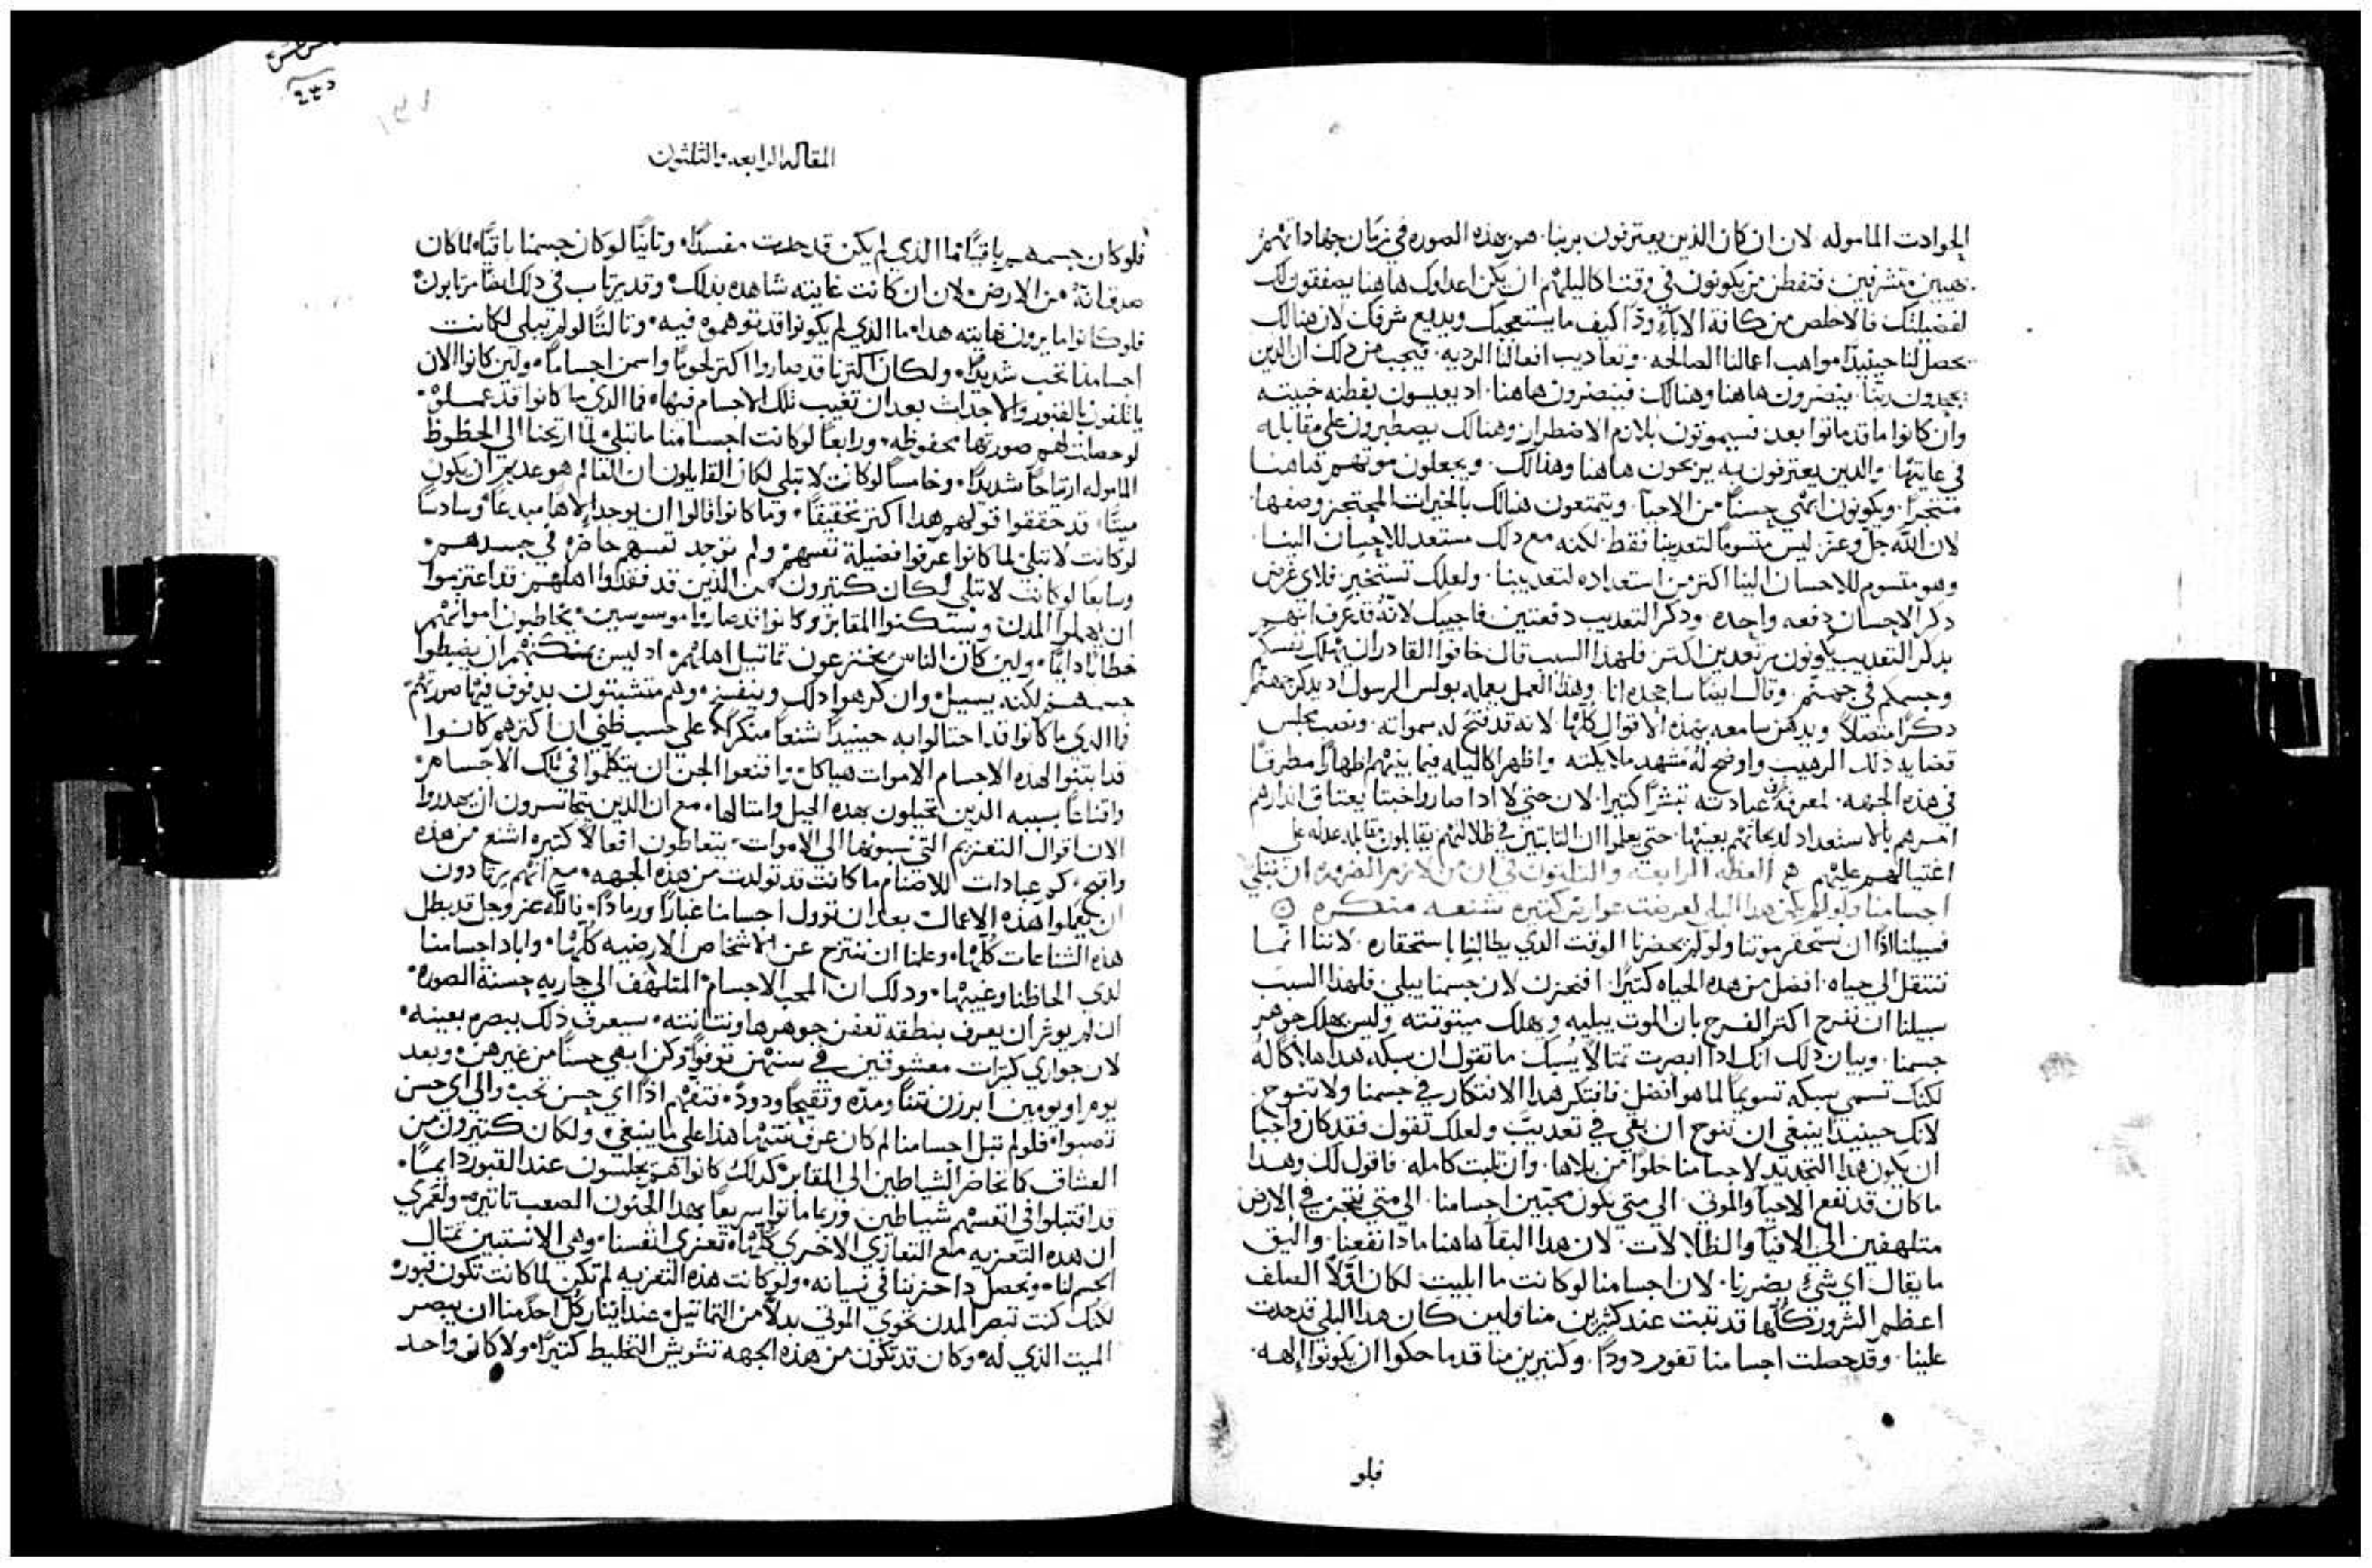 الحوادث الماموله لان ان كان الذين يعترفون بربنا هم بهذه الصوره في زمان جهاداتهم
مهيبين متشرفين فتفطن من يكونون في وقت اكاليلهم ان يكن اعداوك هاهنا يصفقون لك
لفضيلتك فالاخلص من كافة الاباء ودًا كيف ما يستعجبك ويديع شرفك لان هنالك
يحصل لنا حينيدٍ مواهب اعمالنا الصالحه وتعاديب افعالنا الرديه فيجب من دلك ان الدين
يجحدون ربنا ينضرون هاهنا وهنالك فينضرون هاهنا اد يعيسون بفطنه خبيته
وان كانوا ما قد ماتوا بعد فسيموتون بلازم الاضطرار وهنالك يصطبرون على مقابله
في غايتها والدين يعترفون به يربحون هاهنا وهنالك ويجعلون موتهم هاهنا
متجرًا ويكونون ابهى حسنًا من الاحيا ويتمتعون هنالك بالخيرات المحتجز وصفها
لان الله جل وعز ليس متسومًا لتعديبنا فقط لكنه مع دلك مستعد للاحسان الينا
وهو متسوم للاحسان الينا اكتر من استعداده لتعديبنا ولعلك تستخبر فلاي غرض
دكر الاحسان دفعه واحده ودكر التعديب دفعتين فاجيبك لانه قد عرف انهم
بدكر التعديب يكونون مرتعدين اكتر فلهدا السبب قال خافوا القادر ان يهلك نفسكم
وجسمكم في جهنم وقال ايضًا ساجحده انا وهدا العمل يعمله بولس الرسول اد يدكر جهنم
دكرًا متصلًا ويدهن سامعه بهده الاقوال كلها لانه قد فتح له سمواته ونصب مجلس
قضايه دلك الرهيب واوضح له مشهد ملايكته واظهر اكاليله فيما بينهم اظهارًا مطرقًا
في هده الجهه لمعرفة عبادته تيشرًا كتيرا لان حتى لا ادا صاروا خبتا يعتاق اندارهم
امرهم بالاستعداد لديحاتهم بعينها حتى يعلموا ان التابتين في ظلالتهم يقابلون مقابله عدله على
اغتيالهم عليهم العظه الرابعه والتلتون في ان من لازم الضروره ان تبلي
اجسامنا ولو لم يكن هدا البلي لعرضت عوارض كتيره شنعه منكره
فسبيلنا ادًا ان نستحقر موتنا ولو لم يحضرنا الوقت الدي يطالبنا باستحقاره لاننا انما
ننتقل الى حياه افضل من هده الحياه كتيرًا افنحزن لان جسمنا يبلي فلهدا السبب
سبيلنا ان نفرح اكتر الفرح بان الموت يبليه ويهلك ميتوتته وليس يهلك جوهر
جسمنا وبيان دلك انك ادا ابصرت تمتالًا يسبك ما تقول ان سبكه هدا هلاكًا له
لكنك تسمي سبكه تسويمًا لما هو افضل فافتكر هدا الافتكار في جسمنا ولا تنوح
لانك حينيدٍ ينبغي ان تنوح ان بقي في تعديب ولعلك تقول فقد كان واجبا
ان يكون هدا التجديد لاجسامنا خلوًا من بلاها وان تلبت كامله فاقول لك وهدا
ما كان قد نفع الاحيا والموتى الى متى يكون محبين اجسامنا الى متى نتجن في الارض
متلهفين الى الافيا والظلالات لان هدا البقا هاهنا مادا نفعنا واليق
ما يقال اي شي يضرنا لان اجسامنا لو كانت ما ابليت لكان اولًا الصلف
اعظم الشرور كلها قد تبت عند كتيرين منا ولين كان هدا البلي قد حدث
علينا وقد حصلت اجسامنا تفور دودًا وكتيرين منا قدما حكوا ان يكونوا الهه
فلو
المقاله الرابعه والتلتون
فلو كان جسمهم باقيًا فما الدي لم يكن قد حدت مفسدًا وتانيًا لو كان جسمنا باقيًا لما كان
صدق انه من الارض لان ان كانت غايته شاهده بدلك وقد يرتاب في دلك ايضًا مرتابون
فلو كانوا ما يرون نهايته هدا ما الدي لم يكونوا قد توهموه فيه وتالتًا لو لم تبلي لكانت
اجسامنا تحب شديدًا ولكان اكترنا قد صاروا اكتر لحومًا واسمن اجسامًا ولين كانوا الان
يانلفون بالقبور والاجداث بعد ان تغيب تلك الاجسام فيها فما الدي ما كانوا قد عملوه
لو حصلت لهم صورتها محفوظه ورابعًا لو كانت اجسامنا ما تبلي لما ارتحنا الى الحظوظ
الماموله ارتياحًا شديدًا وخامسًا لو كانت لا تبلي لكان القايلون ان العالم هو عديم ان يكون
ميتًا قد حققوا قولهم هدا اكتر تحقيقًا وما كانوا قالوا ان يوجد الاهًا مبدعًا وسادسًا
لو كانت لا تبلي لما كانوا عرفوا فضيلة نفسهم ولم توجد نفسهم حاضره في جسدهم
وسابعًا لو كانت لا تبلي لكان كتيرون من الدين قد فقدوا اهلهم قد اعتزموا
ان يهملوا المدن ويستكنوا المقابر وكانوا قد صاروا موسوسين يخاطبون امواتهم
خطابًا دايمًا ولين كان الناس يخترعون تماتيل اهلهم اد ليس يمكنهم ان يضبطوا
جسمهم لكنه يسيل وان كرهوا دلك وينفسخ وهم متشبتون بدفوف فيها صورتهم
فما الدي ما كانوا قد احتالوا به حينيدٍ شنعًا منكرًا على حسب ظني ان اكترهم كانوا
قد ابتنوا لهده الاجسام الاموات هياكل واقنعوا الجن ان يتكلموا في تلك الاجسام
واقناعًا بسببه الدين يحتالون بهده الحيل وامتالها مع ان الدين يتجاسرون ان يهدروا
الان اقوال التعزيم التي ينسبونها الى الاموات يتعاطون افعالًا كتيره اشنع من هده
واقبح كم عبادات للاصنام ما كانت قد تولدت من هده الجهه مع انهم يرتادون
ان يعملوا هده الاعمال بعد ان تؤول اجسامنا غبارًا ورمادًا فالله عز وجل قد بطل
هده الشناعات كلها وعلمنا ان ننتزح عن الاشخاص الارضيه كلها واباد اجسامنا
لدي الحاظنا وغيبها ودلك ان المحب الاجسام المتلهف الى جاريه حسنة الصوره
ان لم يوثر ان يعرف بنطقه تعفن جوهرها ونتانته سيعرف دلك ببصره بعينه
لان جواري كتيرات معشوقين في سنهن توفوا وكن ابهى حسنًا من غيرهن وبعد
يوم او يومين ابرزن نتنًا ومده وتقيحًا ودود فتفهم ادًا اي حسن تحب والى اي حسن
تصبوا فلو لم تبل اجسامنا لم كان عرف نتنها هدا على ما ينبغي ولكان كتيرون من
العشاق كما تحاضر الشياطين الى المقابر كدلك كانوا هم يجلسون عند القبور دايمًا
قد اقتبلوا في انفسهم شياطين وربما ماتوا سريعًا بهدا الجنون الصعب تاتيره ولعمري
ان هده التعزيه مع التعازي الاخرى كلها تعزي انفسنا وهي الا نستبين تمتال
الجسم لنا ويحصل دا حزننا في نسيانه ولو كانت هده التعزيه لم تكن لما كانت تكون قبور
لكنك كنت تبصر المدن تحوي الموتى بدلًا من التماتيل عند ايتار كل احد منا ان يبصر
الميت الدي له وكان قد تكون من هده الجهه تشويش التخليط كتيرًا ولا كان واحد